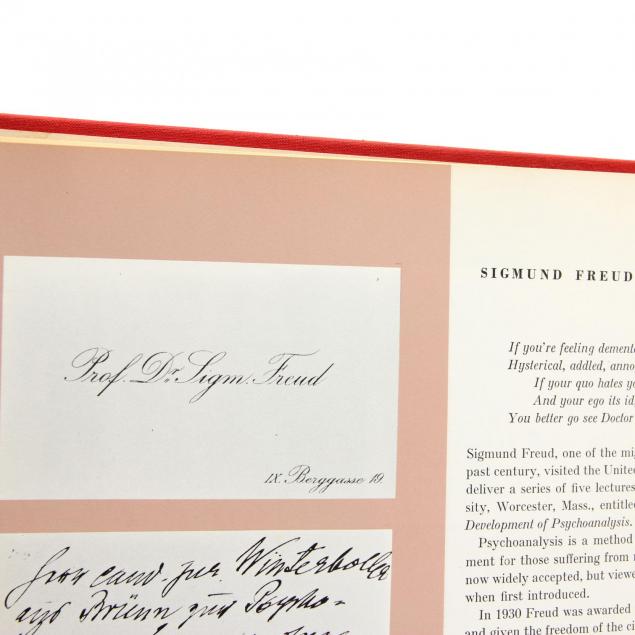 Prof. Dr. Sigm. Freud
IX. Berggasse 19.
Herrn cand. jur. Winterholler
aus Brünn zur Psycho-
SIGMUND FREUD
If you're feeling demente
Hysterical, addled, anno
If your quo hates yo
And your ego its id,
You better go see Doctor
Sigmund Freud, one of the mig
past century, visited the United
deliver a series of five lectures
sity, Worcester, Mass., entitled
Development of Psychoanalysis.
Psychoanalysis is a method
ment for those suffering from
now widely accepted, but viewe
when first introduced.
In 1930 Freud was awarded
and given the freedom of the ci